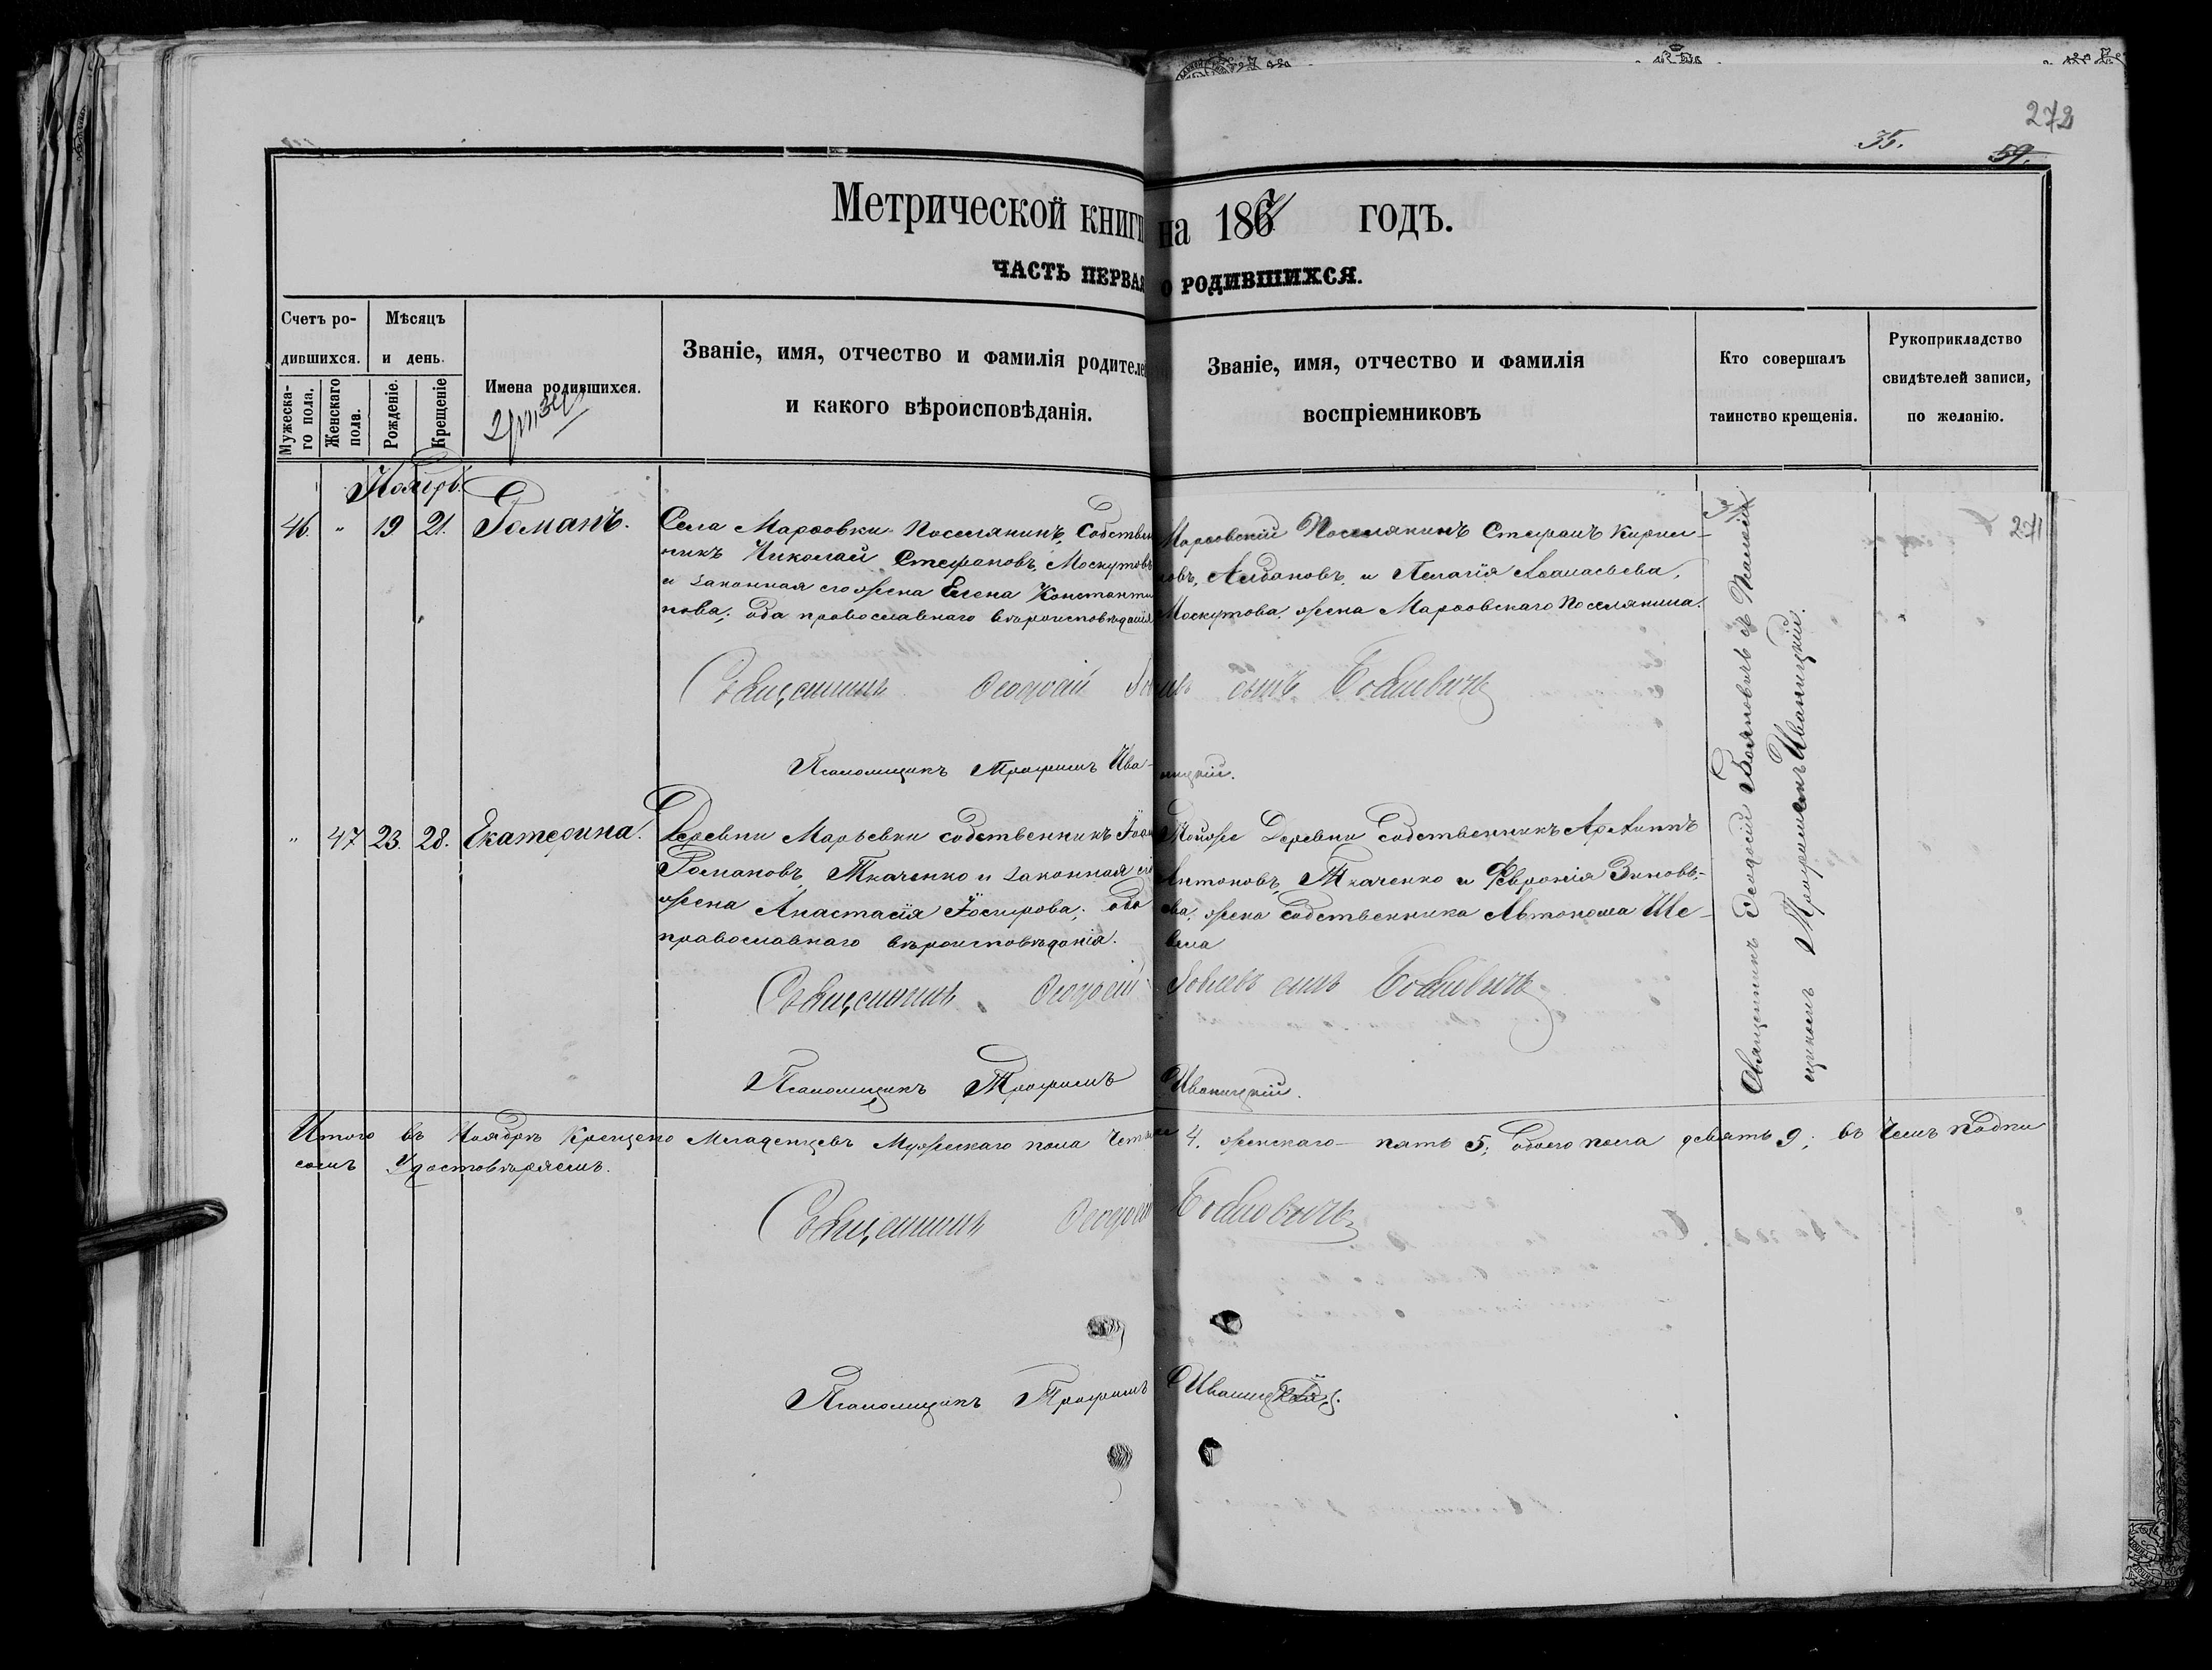 272
35.
59.
Метрической книги на 1867 годъ.
ЧАСТЬ ПЕРВАЯ О РОДИВШИХСЯ.
Счетъ родившихся.
Мужескаго пола.
Женскаго пола.
Мѣсяцъ и день.
Рожденіе.
Крещеніе
Имена родившихся.
Званіе, имя, отчество и фамилія родителей
и какого вѣроисповѣданія.
Званіе, имя, отчество и фамилія
воспріемниковъ
Кто совершалъ
таинство крещенія.
Рукоприкладство
свидѣтелей записи,
по желанію.
Ноябрь.
46. " 19 21. Романъ.
Села Марѳовки Поселянинъ Собствен
никъ Николай Стефановъ, Москутовъ
и законная его жена Елена Константи
нова; оба православнаго вѣроисповѣданія
Марѳовскій Поселянинъ Стефанъ Кирил-
ловъ, Албановъ и Пелагія Аѳанасьева,
Москутова жена Марѳовскаго Поселянина.
271
Священникъ Ѳеодосій сынъ
Псаломщикъ Трофимъ Иваницкій.
" 47 23. 28. Екатерина.
Деревни Марьевки собственникъ Іоан
Романовъ, Ткаченко и законная его
жена Анастасія Іосифова; оба
православнаго вѣроисповѣданія.
Тойже Деревни Собственникъ Архиппъ
Антоновъ, Ткаченко и Февронія Зиновь-
ева, жена Собственника Автонома Ше-
вела
Священникъ Ѳеодосій сынъ
Псаломщикъ Трофимъ Иваницкій.
Священникъ Ѳеодосій съ Псалом
щикомъ Трофимомъ Иваницкимъ.
Итого въ Ноябрѣ Крещено Младенцевъ Мужескаго пола Четыре 4. женскаго пять 5; обоего пола девять 9; въ чемъ Подпи
семъ Удостовѣряемъ.
Священникъ Ѳеодосій
Псаломщикъ Трофимъ Иваницкій.